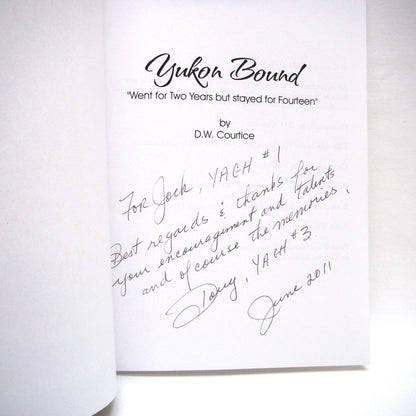 Yukon Bound
"Went for Two Years but stayed for Fourteen"
by
D.W. Courtice
For Jock, YACH #1
Best regards & thanks for
your encouragement and talents
and of course the memories.
Doug, YACH #3.
June 2011